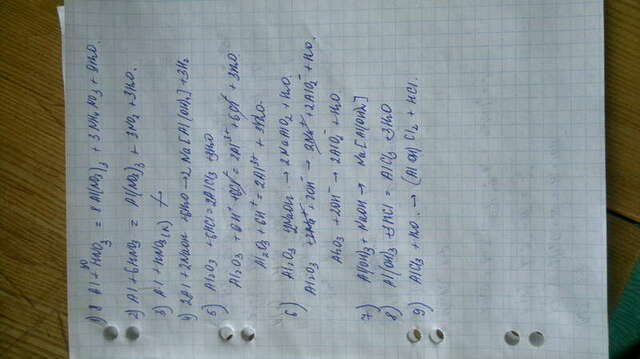 1) 8 Al + 30 HNO₃ = 8 Al(NO₃)₃ + 3 NH₄NO₃ + 9H₂O.
2) Al + 6HNO₃ = Al(NO₃)₃ + 3NO₂ + 3H₂O.
3) Al + HNO₃(к) ↛
4) 2Al + 2NaOH + 6H₂O → 2 Na[Al(OH)₄] + 3H₂
5) Al₂O₃ + 6HCl = 2AlCl₃ + 3H₂O
Al₂O₃ + 6H⁺ + 6Cl⁻ = 2Al³⁺ + 6Cl⁻ + 3H₂O
Al₂O₃ + 6H⁺ = 2Al³⁺ + 3H₂O.
6) Al₂O₃ 2NaOH → 2NaAlO₂ + H₂O.
Al₂O₃ + 2Na⁺ + 2OH⁻ → 2Na⁺ + 2AlO₂⁻ + H₂O.
Al₂O₃ + 2OH⁻ → 2AlO₂⁻ + H₂O.
7) Al(OH)₃ + NaOH → Na[Al(OH)₄]
8) Al(OH)₃ + 3HCl = AlCl₃ + 3H₂O
9) AlCl₃ + H₂O → (AlOH)Cl₂ + HCl.